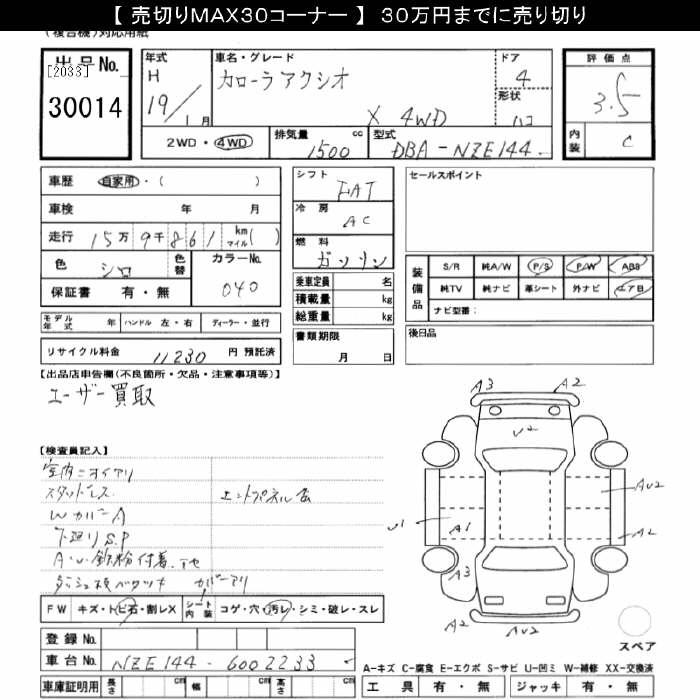 【 売切りMAX30コーナー 】 30万円までに売り切り
(複合機)対応用紙
出品No. [2033] 30014
年式 H 19/1月
車名・グレード カローラアクシオ X 4WD
ドア 4
形状 ハコ
評価点 3.5
内装 C
2WD・4WD
排気量 1500 cc
型式 DBA-NZE144-
車歴 自家用・( )
車検 年 月
走行 15万9千861 km マイル( )
色 シロ 色替
カラーNo. 040
保証書 有・無
シフト FAT
冷房 AC
燃料 ガソリン
乗車定員 名
積載量 kg
総重量 kg
書類期限 月 日
セールスポイント
装備品
S/R 純A/W P/S P/W ABS
純TV 純ナビ 革シート 外ナビ エアB
ナビ型番:
後日品
モデル年式 年 ハンドル 左・右 ディーラー・並行
リサイクル料金 11230 円 預託済
【出品店申告欄(不良箇所・欠品・注意事項等)】
ユーザー買取
【検査員記入】
室内ニオイアリ
スタッドレス エンドパネル
WカバーA
下廻りS.P
A・U 鉄粉付着
ダッシュ板ベタツキ カバーアリ
FW キズ・トビ石・割レX シート内装 コゲ・穴・汚レ・シミ・破レ・スレ
登録No.
車台No. NZE144-6002233
車庫証明用 長さ cm 幅 cm 高さ cm
A3 A2
U2
AU2
U1 A1 A2
A3
A2 AU2
スペア
A-キズ C-腐食 E-エクボ S-サビ U-凹ミ W-補修 XX-交換済
工具 有・無 ジャッキ 有・無